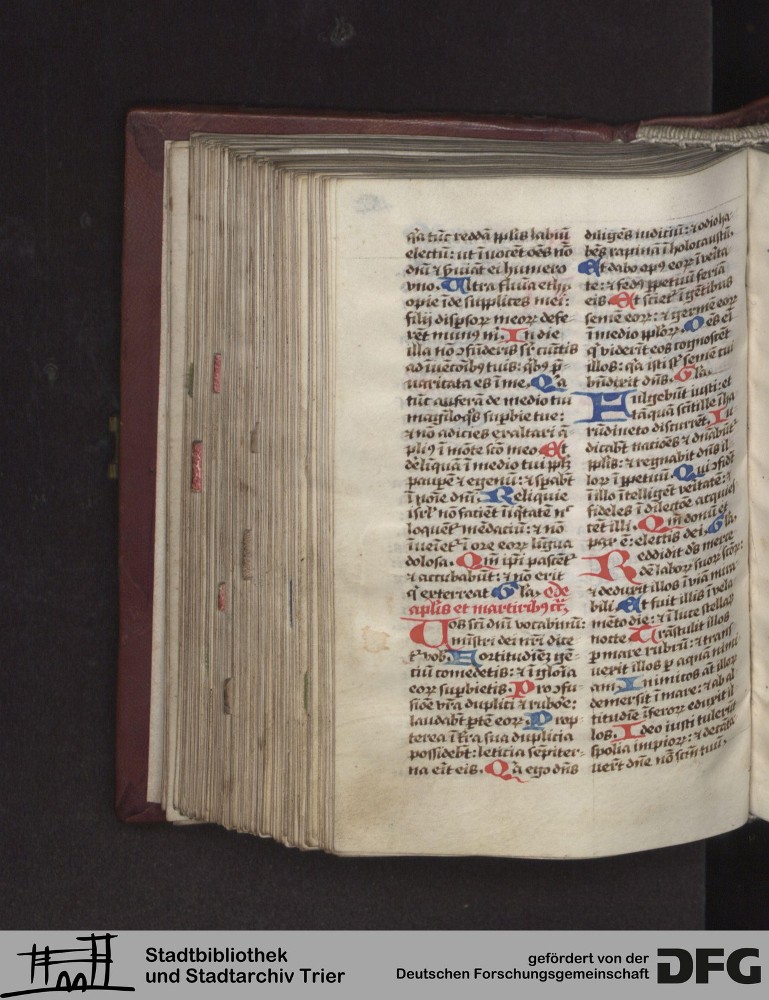 q̄a tūc reddā pplis labiū
electū: ut īuocēt oēs nō
dn̄i & s̄uiāt ei humero
vno. Ultra flūīa ethy
opie īde supplices mei:
filij disp̄soꝝ meoꝝ defe
rēt mun9 m̄. In die
illa nō ↄfūderis sr̄ cūctis
ad īuētōib9 tuis: q̄b9 p̄
uaricata es ī me. Q̄a
tūc auferā de medio tui
magiloq̄s supbie tue:
& nō adicies exaltari ā
pli9 ī mōte scō meo. Et
deliquā ī medio tui ppl̄z
paupē & egenū: & sꝑabt̄
ī noīe dnī. Reliquie
isrl̄ nō faciēt īiq̄tatē n̄
loquēt̄ mēdaciū: & nō
īueīet̄ ī ore eoꝝ līgua
dolosa. Qm̄ ip̄i pascēt̄
& accubabūt: & nō erit
q̄ exterreat. Gl̄a. & de
aplis et martirib9 cā.
Uos scī dn̄i vocabimī:
mīstri dei nr̄i dice
t̄ vob. Fortitudīēz gē
tiū comedetis: & ī glōīa
eoꝝ supbietis. Pro ↄfu
siōe vr̄a duplici & rubōe:
laudabt̄ p̄tē eoꝝ. Prop
terea ī t̄ra sua duplicia
possidebt̄: leticia sēpiter
na eīt eis. Q̄a ego dn̄s
diligēs iudiciū: & odio ha
bēs rapinā ī holocaustū.
Et dabo op9 eoꝝ ī veīta
te: & fed9 ꝑpetuū feriā
eis. Et sciet̄ ī gētibus
semē eoꝝ: & germē eoꝝ
ī medio pploꝝ. Oēs q̄
q̄ viderīt eos cognoscēt
illos: q̄a isti st̄ semē cui
bn̄dixit dn̄s. Gl̄a.
Fulgebūt iusti: et
tāquā scītille ī ha
rūdīneto discurrēt. Iu
dicabt̄ natiōes & dn̄abūt̄
pplis: & regnabit dn̄s il
loꝝ ī ꝑpetuū. Qui ↄfidt̄
ī illo ītelligēt veītatē: &
fideles ī dilectōe acquies
cēt illi. Qm̄ donū et
pax ē: electis dei. Gl̄a.
Reddidit d̄s mercē
dē laboꝝ suoꝝ scō4:
& deduxit illos ī via mira
bili. Et fuit illis ī vela
mēto diei: & ī luce stellaꝝ
nocte. Trāstulit illos
ꝑ mare rubrū: & trans
uexit illos ꝑ aquā nimi
am. Inimicos āt illoꝝ
demersit ī mare: & ab al
titudīe īferoꝝ eduxit il
los. Ideo iusti tulerūt
spolia īpioꝝ: & decāta
uer̄t dn̄e nō scm̄ tuū.
Stadtbibliothek
und Stadtarchiv Trier
gefördert von der
Deutschen Forschungsgemeinschaft
DFG